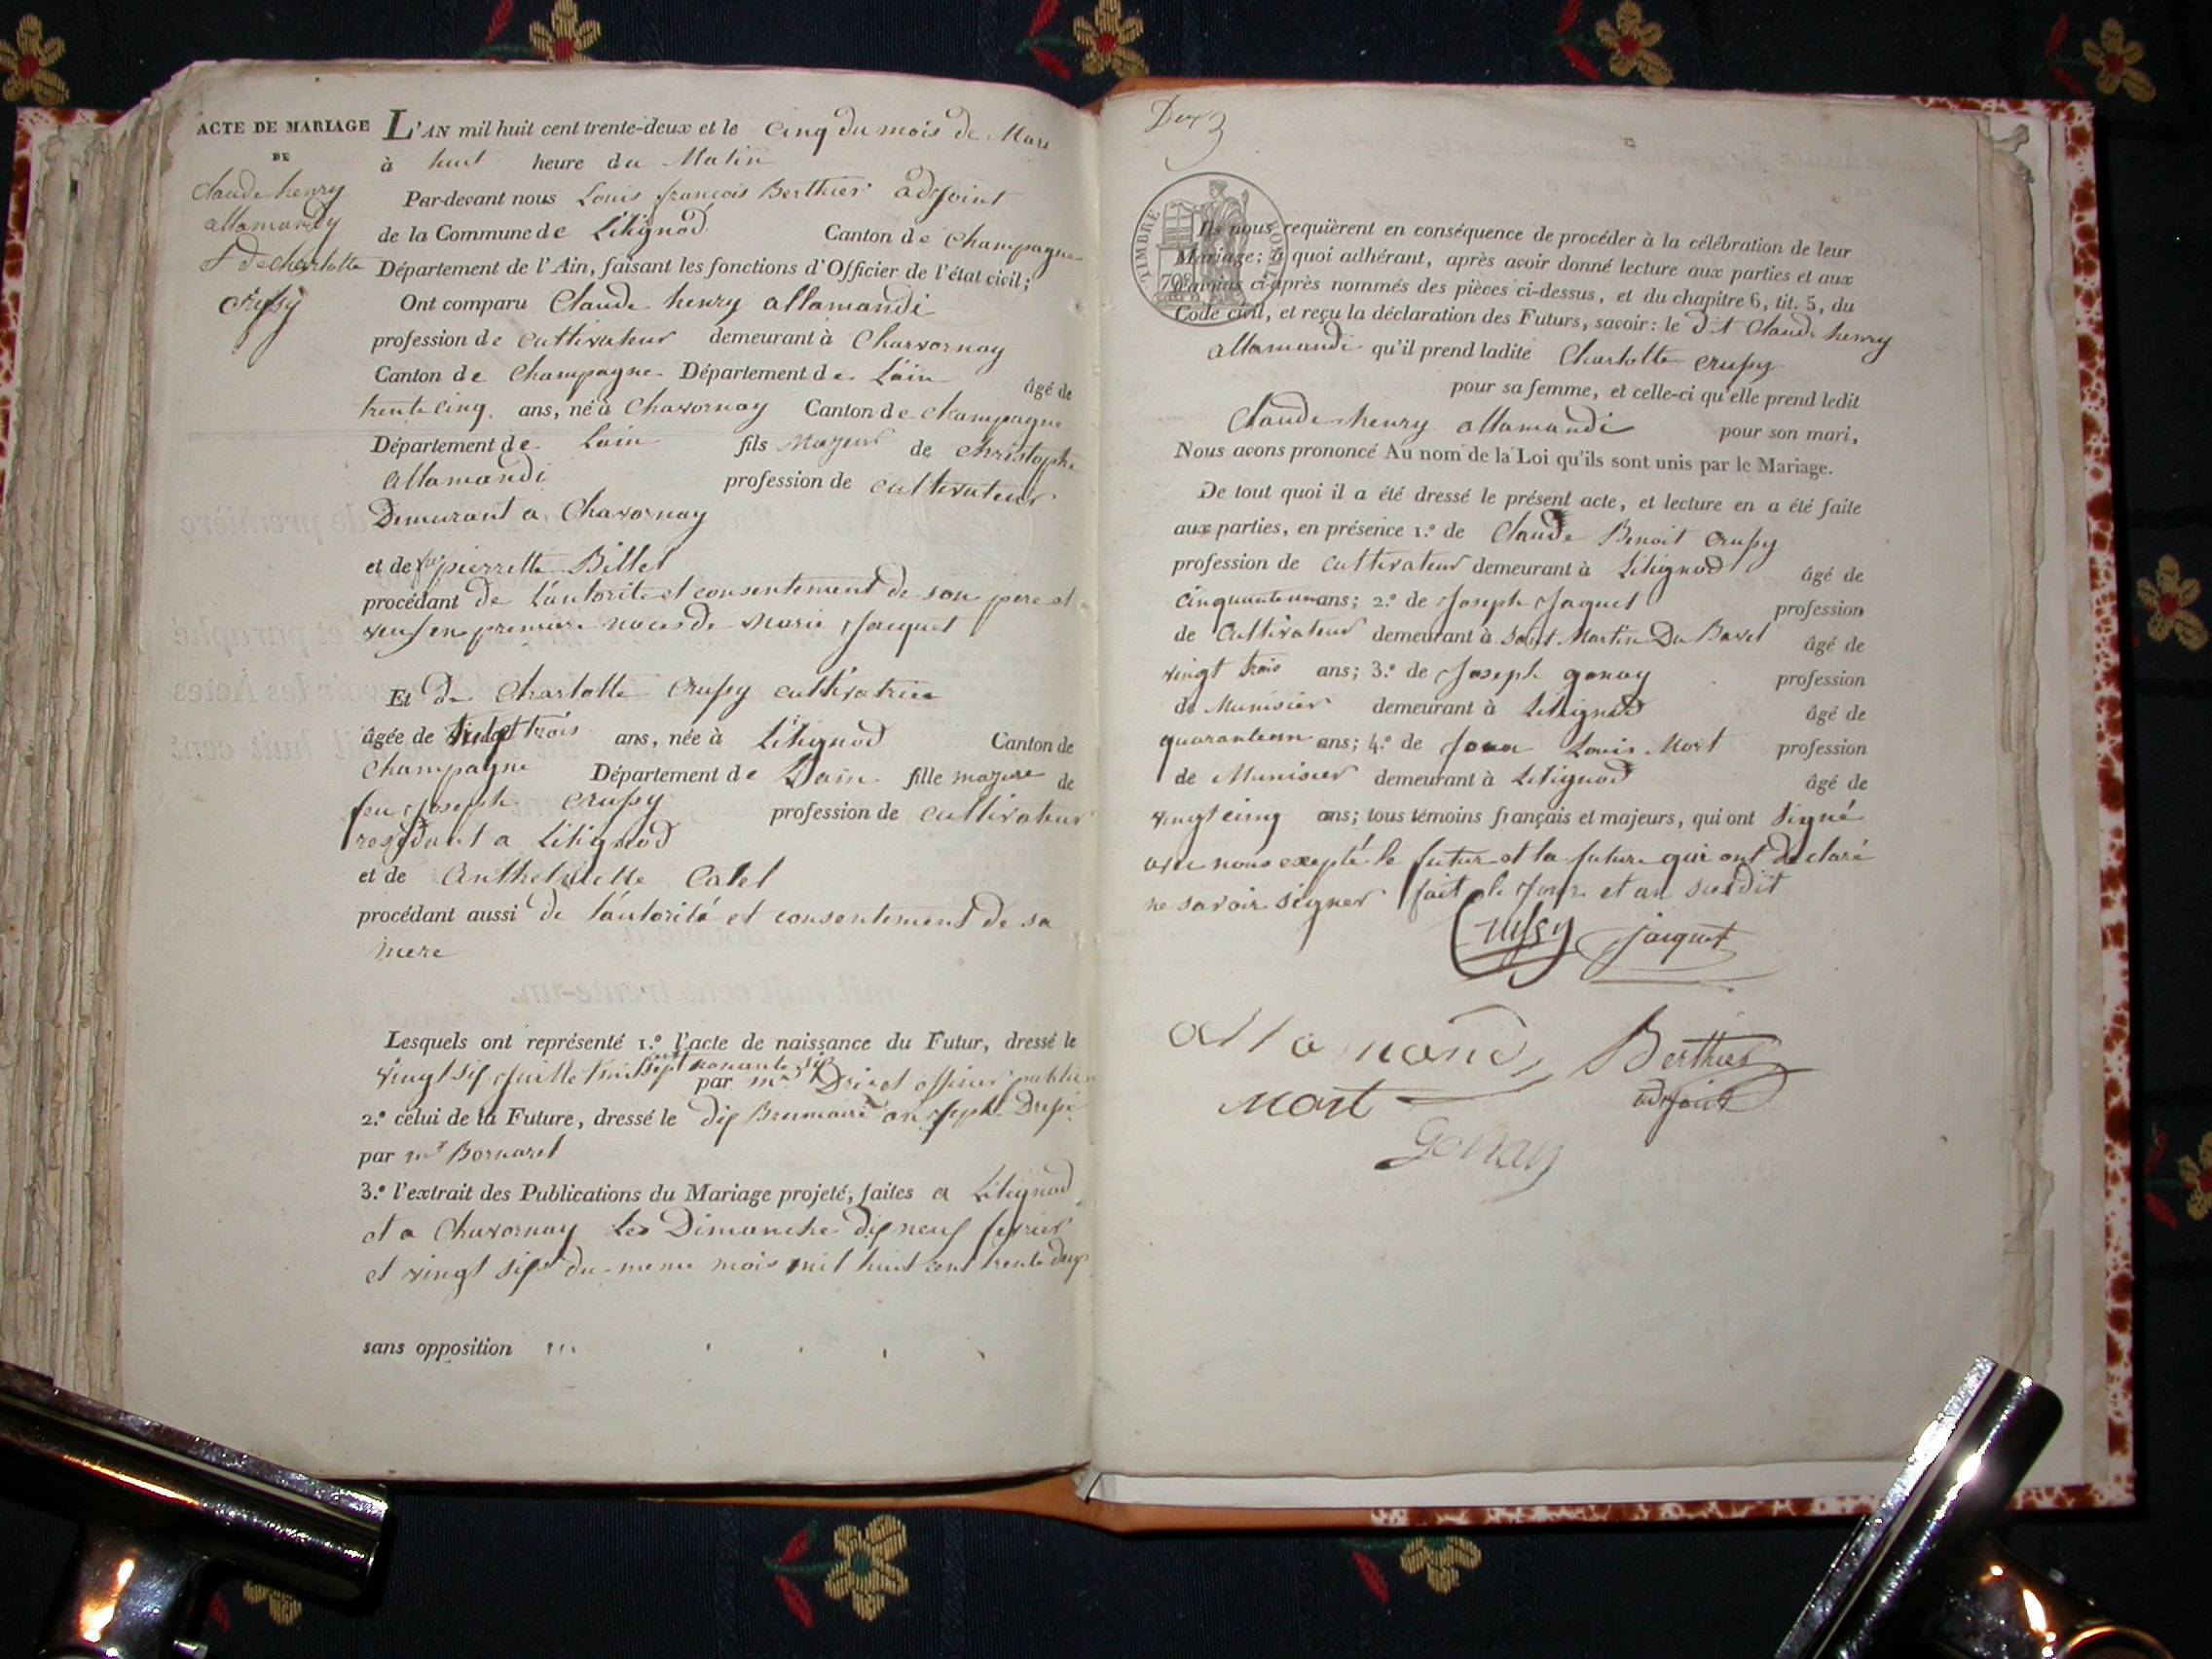 ACTE DE MARIAGE
DE
Claude henry
allamandy
et de charlotte
crussy
L'AN mil huit cent trente-deux et le cinq du mois de Mars
à huit heure du Matin
Par-devant nous Louis françois Berthier adjoint
de la Commune de Lilignod Canton de Champagne
Département de l'Ain, faisant les fonctions d'Officier de l'état civil;
Ont comparu Claude henry allamandi
profession de cultivateur demeurant à Charvornay
Canton de Champagne Département de Lain âgé de
trente cinq ans, né à Chavornay Canton de champagne
Département de Lain fils Majeur de christophe
allamandi profession de cultivateur
Demeurant a Chavornay
et de pierrette Billet
procédant de L'autorite et consentement de son pere et
veuf en premiere noces de Marie Jacquet
Et De Charlotte Crussy cultivatrice
âgée de trois ans, née à Lilignod Canton de
Champagne Département de Lain fille majure de
feu Joseph Crussy profession de cultivateur
residant a Lilignod
et de Anthelmette Calet
procédant aussi de l'autorité et consentement de sa
mere
Lesquels ont représenté 1.° l'acte de naissance du Futur, dressé le
vingt six Juillet sept nonante six
par mr officier public
2.° celui de la Future, dressé le dix Brumaire an sept
par mr Bornarel
3.° l'extrait des Publications du Mariage projeté, faites a Lilignod
et a Chavornay Les Dimanche dix neuf fevrier
et vingt six du meme mois mil huit cent trente deux
sans opposition
Deux
TIMBRE ROYAL
70c
Ils nous requièrent en conséquence de procéder à la célébration de leur
Mariage; à quoi adhérant, après avoir donné lecture aux parties et aux
témoins ci-après nommés des pièces ci-dessus, et du chapitre 6, tit. 5, du
Code civil, et reçu la déclaration des Futurs, savoir: le dit Claude henry
allamandi qu'il prend ladite Charlotte crussy
pour sa femme, et celle-ci qu'elle prend ledit
Claude henry allamandi pour son mari,
Nous avons prononcé Au nom de la Loi qu'ils sont unis par le Mariage.
De tout quoi il a été dressé le présent acte, et lecture en a été faite
aux parties, en présence 1.° de Claude Benoit crussy
profession de cultivateur demeurant à Lilignod âgé de
cinquante un ans; 2.° de Joseph Jaquet profession
de Cultivateur demeurant à Saint Martin Du Bavel âgé de
vingt trois ans; 3.° de Joseph gonay profession
de Munisier demeurant à Lilignod âgé de
quarante un ans; 4.° de Louis Mort profession
de Munisier demeurant à Lilignod âgé de
vingt cinq ans; tous témoins français et majeurs, qui ont signé
avec nous exepté le futur et la future qui ont declaré
ne savoir signer fait le Jour et an susdit
Crussy jacquet
allamandi Berthier
adjoint
Mort
Gonay